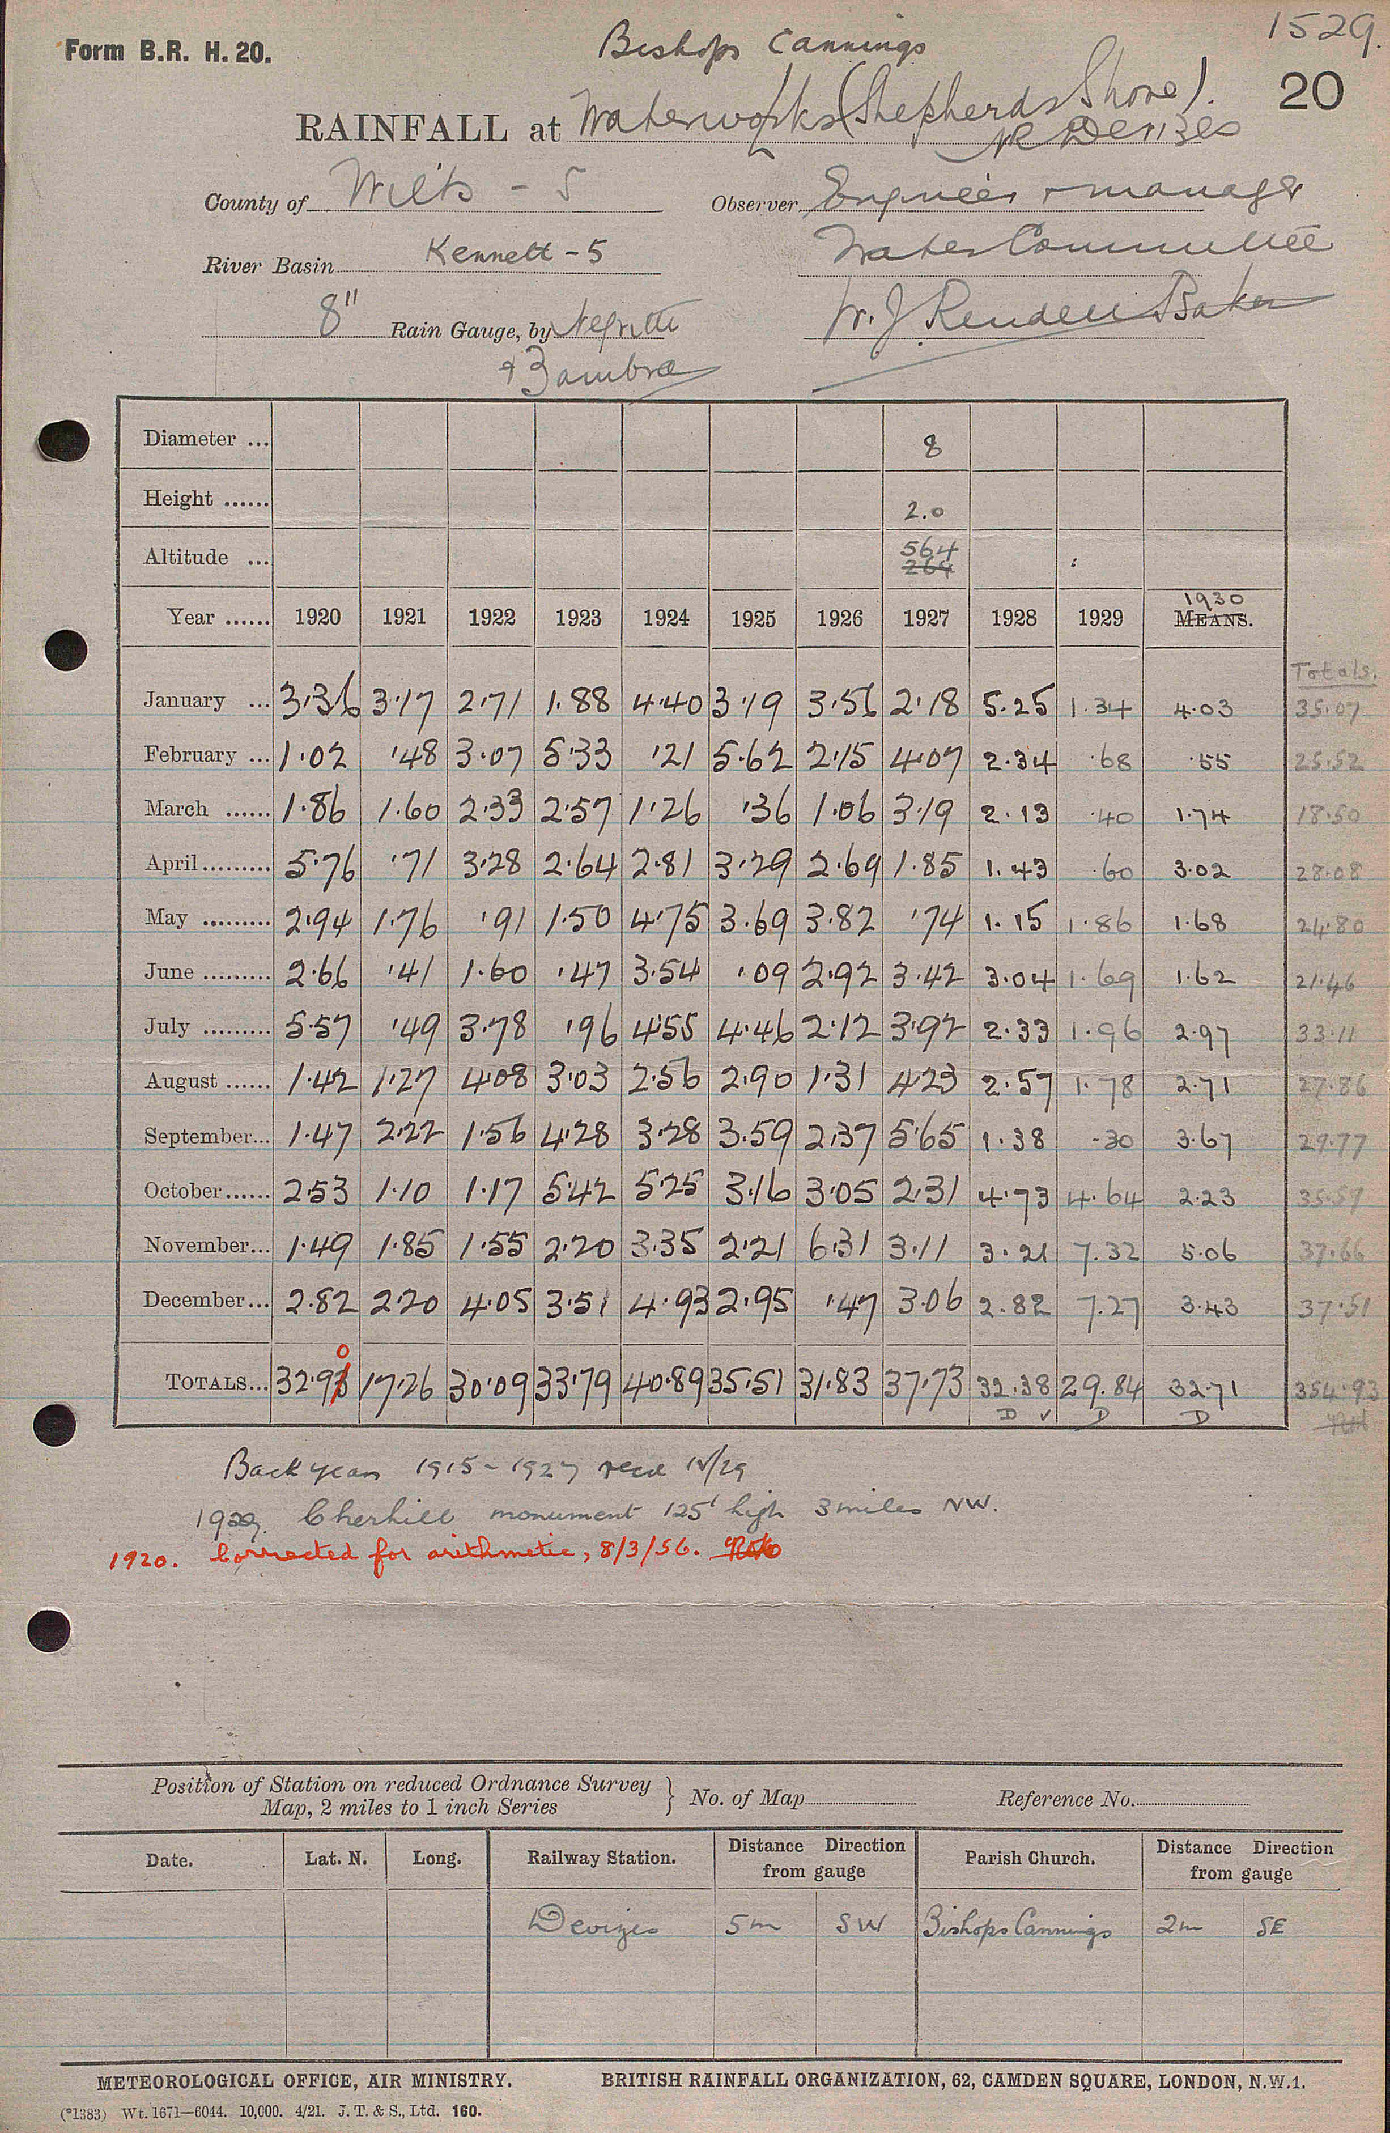 1529.
Form B.R. H. 20.
Bishops Cannings
20
RAINFALL at Waterworks (Shepherds Shore).
Nr Devizes
County of Wilts - 5
Observer Engineer & manager
River Basin Kennett - 5
Water Committee
8" Rain Gauge, by Negretti
& Zambra
W. J. Rendell Baker
Diameter ... 8
Height ...... 2.0
Altitude ... 564
264
1930
Year ...... 1920 1921 1922 1923 1924 1925 1926 1927 1928 1929 MEANS.
Totals.
January ... 3.36 3.17 2.71 1.88 4.40 3.19 3.56 2.18 5.25 1.34 4.03 35.07
February ... 1.02 .48 3.07 5.33 .21 5.62 2.15 4.07 2.34 .68 .55 25.52
March ...... 1.86 1.60 2.33 2.57 1.26 .36 1.06 3.19 2.13 .40 1.74 18.50
April ......... 5.76 .71 3.28 2.64 2.81 3.29 2.69 1.85 1.43 .60 3.02 28.08
May ......... 2.94 1.76 .91 1.50 4.75 3.69 3.82 .74 1.15 1.86 1.68 24.80
June ......... 2.66 .41 1.60 .47 3.54 .09 2.92 3.42 3.04 1.69 1.62 21.46
July ......... 5.57 .49 3.78 .96 4.55 4.46 2.12 3.92 2.33 1.96 2.97 33.11
August ...... 1.42 1.27 4.08 3.03 2.56 2.90 1.31 4.23 2.57 1.78 2.71 27.86
September... 1.47 2.22 1.56 4.28 3.28 3.59 2.37 5.65 1.38 .30 3.67 29.77
October...... 2.53 1.10 1.17 5.42 5.25 3.16 3.05 2.31 4.73 4.64 2.23 35.59
November... 1.49 1.85 1.55 2.20 3.35 2.21 6.31 3.11 3.21 7.32 5.06 37.66
December... 2.82 2.20 4.05 3.51 4.93 2.95 .47 3.06 2.82 7.27 3.43 37.51
0
TOTALS... 32.98 17.26 30.09 33.79 40.89 35.51 31.83 37.73 32.38 29.84 32.71 354.93
D ✓ D D
Back years 1915 - 1927 recd IV/29
1929. Cherhill monument 125' high 3 miles NW.
1920. Corrected for arithmetic, 8/3/56.
Position of Station on reduced Ordnance Survey
Map, 2 miles to 1 inch Series } No. of Map Reference No.
Date. Lat. N. Long. Railway Station. Distance Direction from gauge Parish Church. Distance Direction from gauge
Devizes 5m SW Bishops Cannings 2m SE
METEOROLOGICAL OFFICE, AIR MINISTRY. BRITISH RAINFALL ORGANIZATION, 62, CAMDEN SQUARE, LONDON, N.W.1.
(*1383) Wt. 1671—6044. 10,000. 4/21. J. T. & S., Ltd. 160.